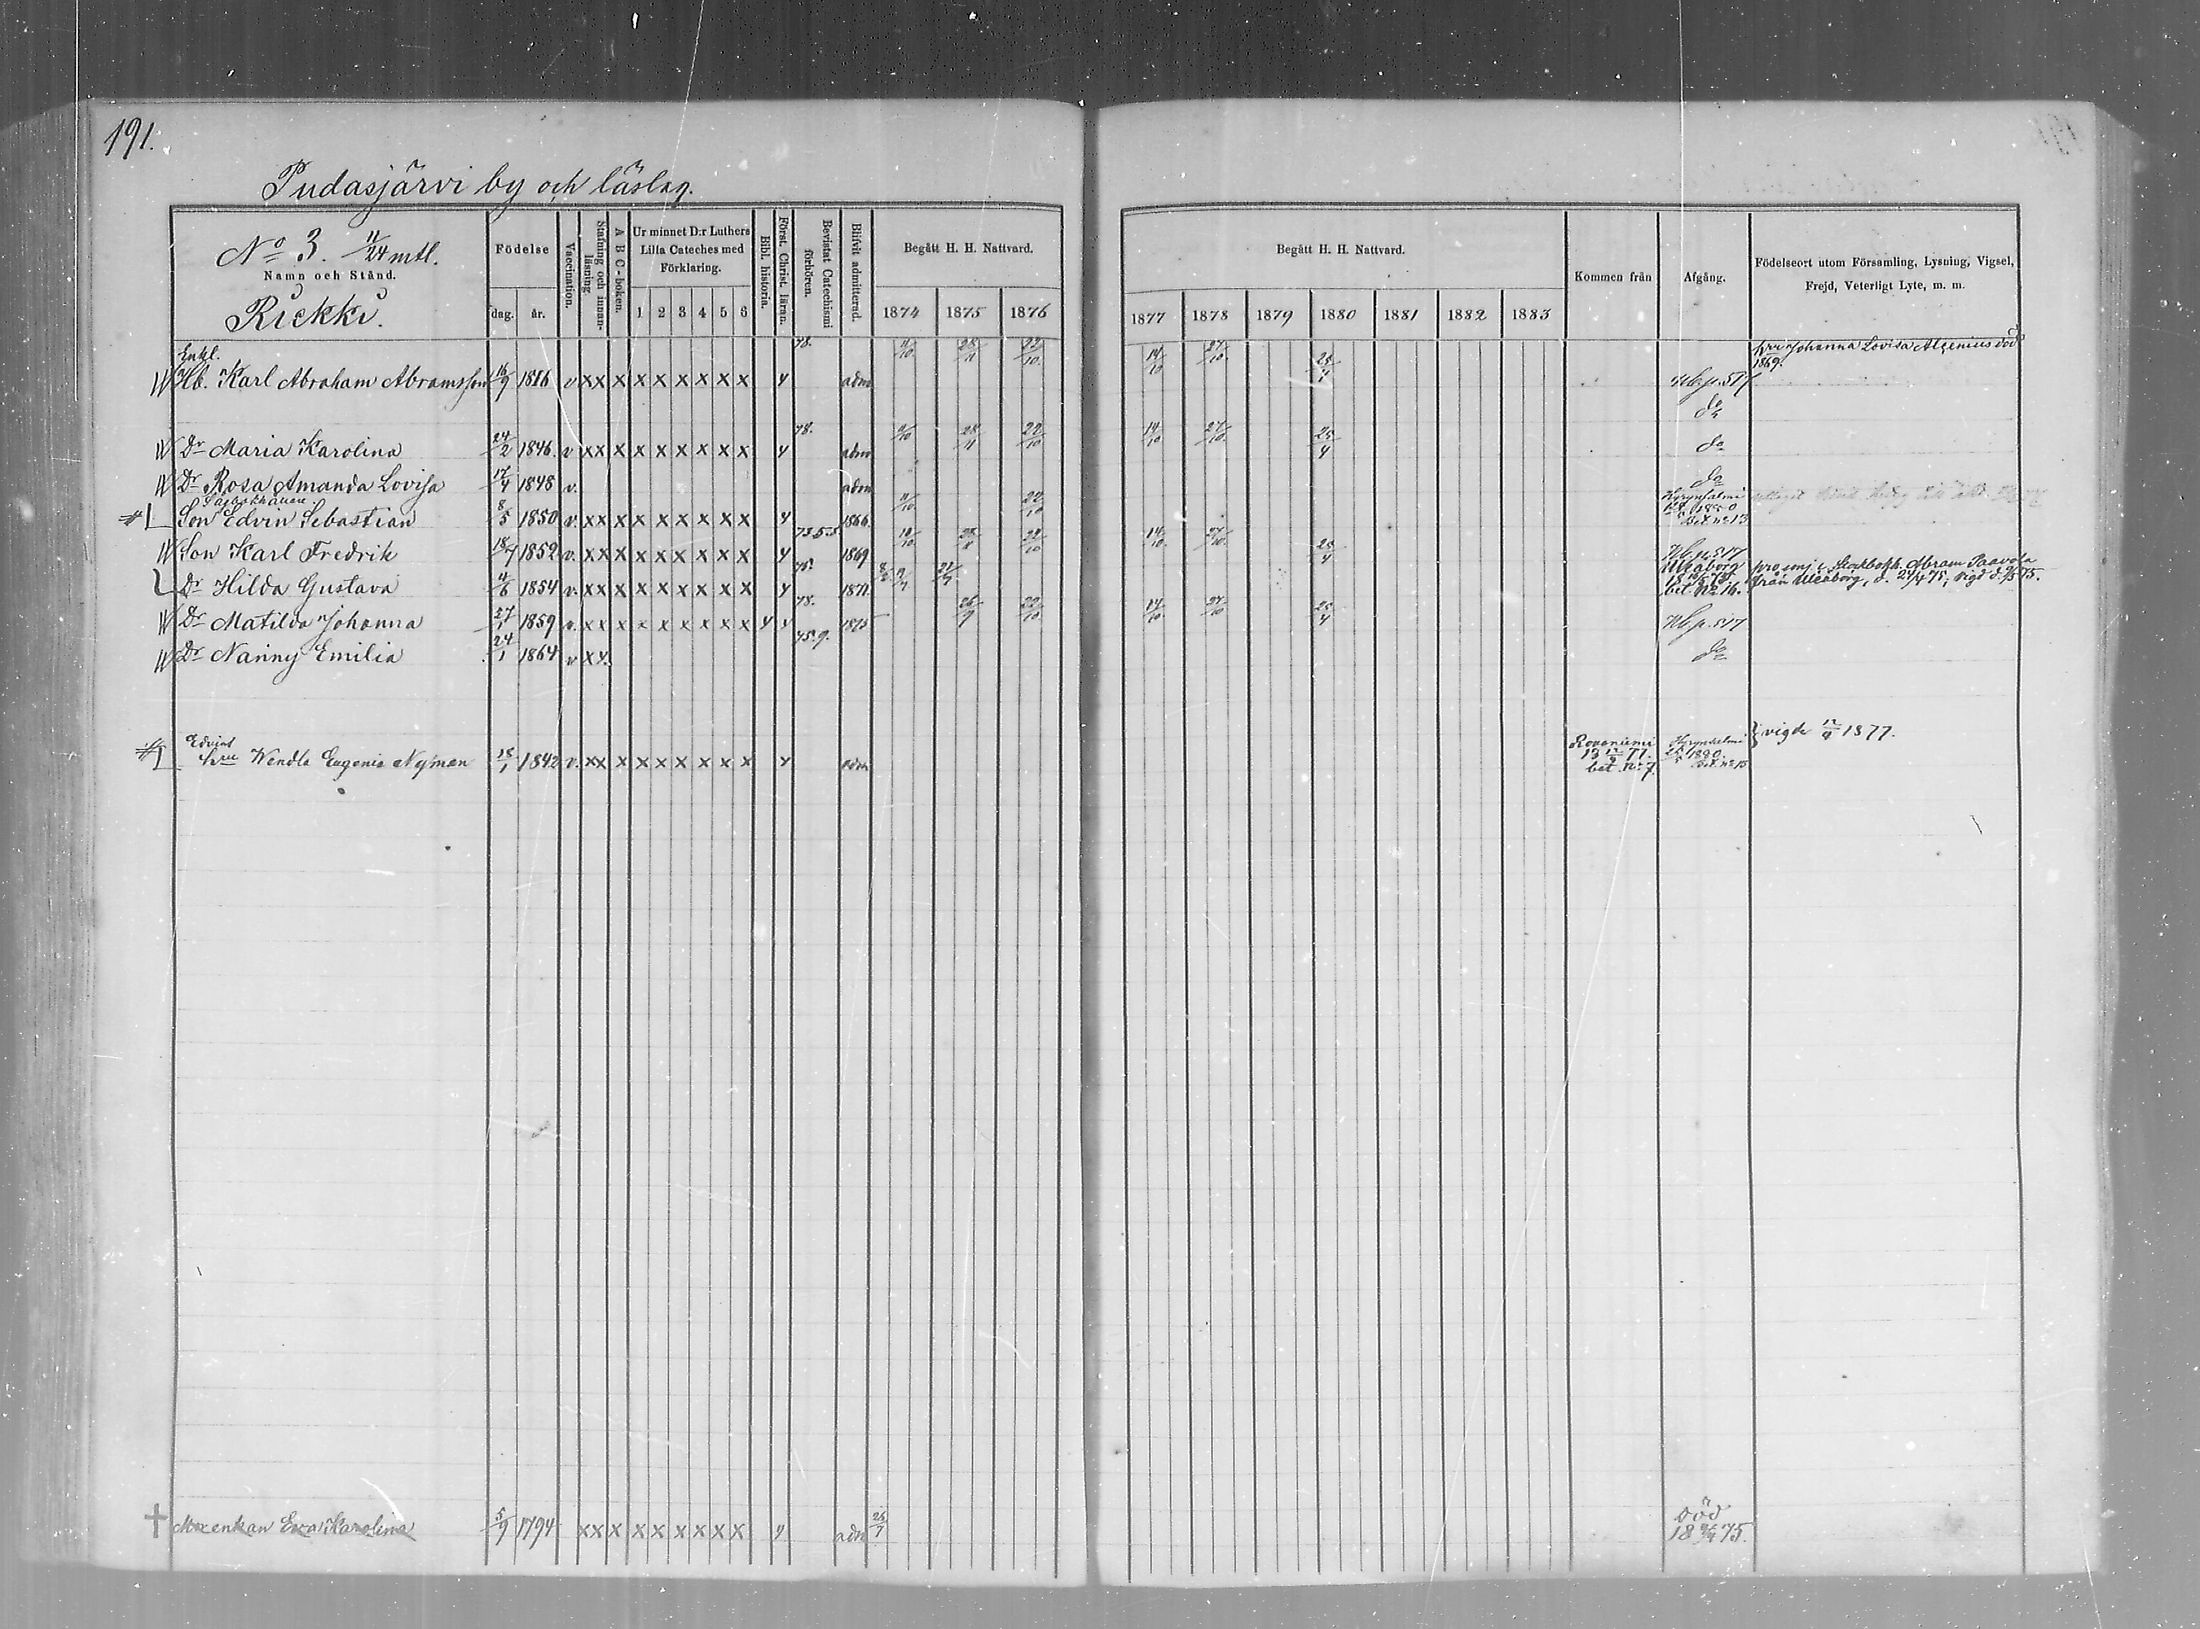 191.
Pudasjärvi by och läslag.
No 3. 11/24 mtl.
Namn och Stånd.
Riekki.
Födelse
dag. år.
Vaccination.
Stafning och innan-läsning.
A B C-boken.
Ur minnet D:r Luthers Lilla Cateches med Förklaring.
1 2 3 4 5 6
Bibl. historia.
Först. Christ. läran.
Bevistat Catechismi förhören.
Blifvit admitterad.
Begått H. H. Nattvard.
1874 1875 1876
Begått H. H. Nattvard.
1877 1878 1879 1880 1881 1882 1883
Kommen från
Afgång.
Födelseort utom Församling, Lysning, Vigsel, Frejd, Veterligt Lyte, m. m.
Enkl. 78. 11/10 28/11 22/10 14/10 27/10 25/4 hru Johanna Lovisa Alcenius död 1869.
Hb. Karl Abraham Abramsson 16/9 1816 v xx x x x x x x x y adm Hb. p. 517
do
Dr Maria Karolina 24/2 1846 v xx x x x x x x x y 78. adm 9/10 28/11 22/10 14/10 27/10 25/4 do
Dr Rosa Amanda Lovisa 17/4 1848 v. adm do
Son Edvin Sebastian 8/5 1850 v. xx x x x x x x x y 1866 11/10 22/10 Hyrynsalmi 1880 bet. no 13
Son Karl Fredrik 18/7 1852 v. xx x x x x x x x y 73.5.5 1869 10/10 28/11 22/10 14/10 27/10 25/4 Hb. p. 517
Dr Hilda Gustava 4/6 1854 v. xx x x x x x x x y 75. 1871 Uleåborg bet. No 16. från Uleåborg, d. 25/4 75, vigd d. 9/5 75.
Dr Matilda Johanna 27/1 1859 v. xx x x x x x x x y y 78. 1875 26/9 22/10 14/10 27/10 25/4 Hb. p. 517
Dr Nanny Emilia 24/1 1864 v xy. 75.9. do
Edvins
hru Wendla Eugenia Nyman 15/1 1842 v. xx x x x x x x x y adm Rovaniemi 18 12/9 77. bet. No 7. Hyrynsalmi 1880. bet. no 13 } vigde 12/4 1877.
† Enkan Eva Karolina 5/9 1794 xx x x x x x x x y adm 25/1 död 18 75.